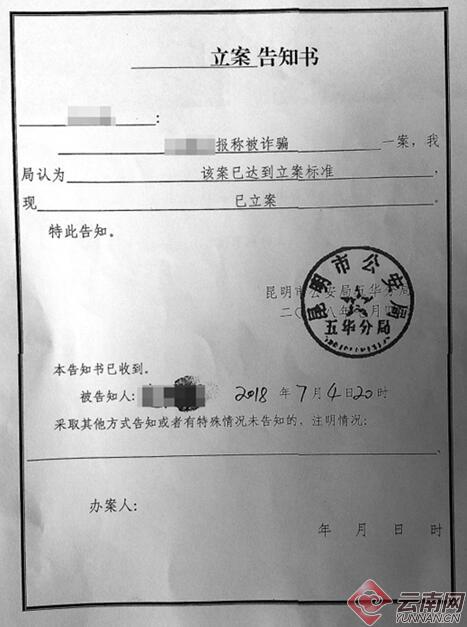 立案 告知书
：
报称被诈骗 一案，我
局认为 该案已达到立案标准 ，
现 已立案 。
特此告知。
昆明市公安局五华分局
二〇一八年 月 日
昆明市公安局
五华分局
本告知书已收到。
被告知人： 2018 年 7 月 4 日 20 时
采取其他方式告知或者有特殊情况未告知的，注明情况：
办案人：
年 月 日 时
云南网
YUNNAN.CN